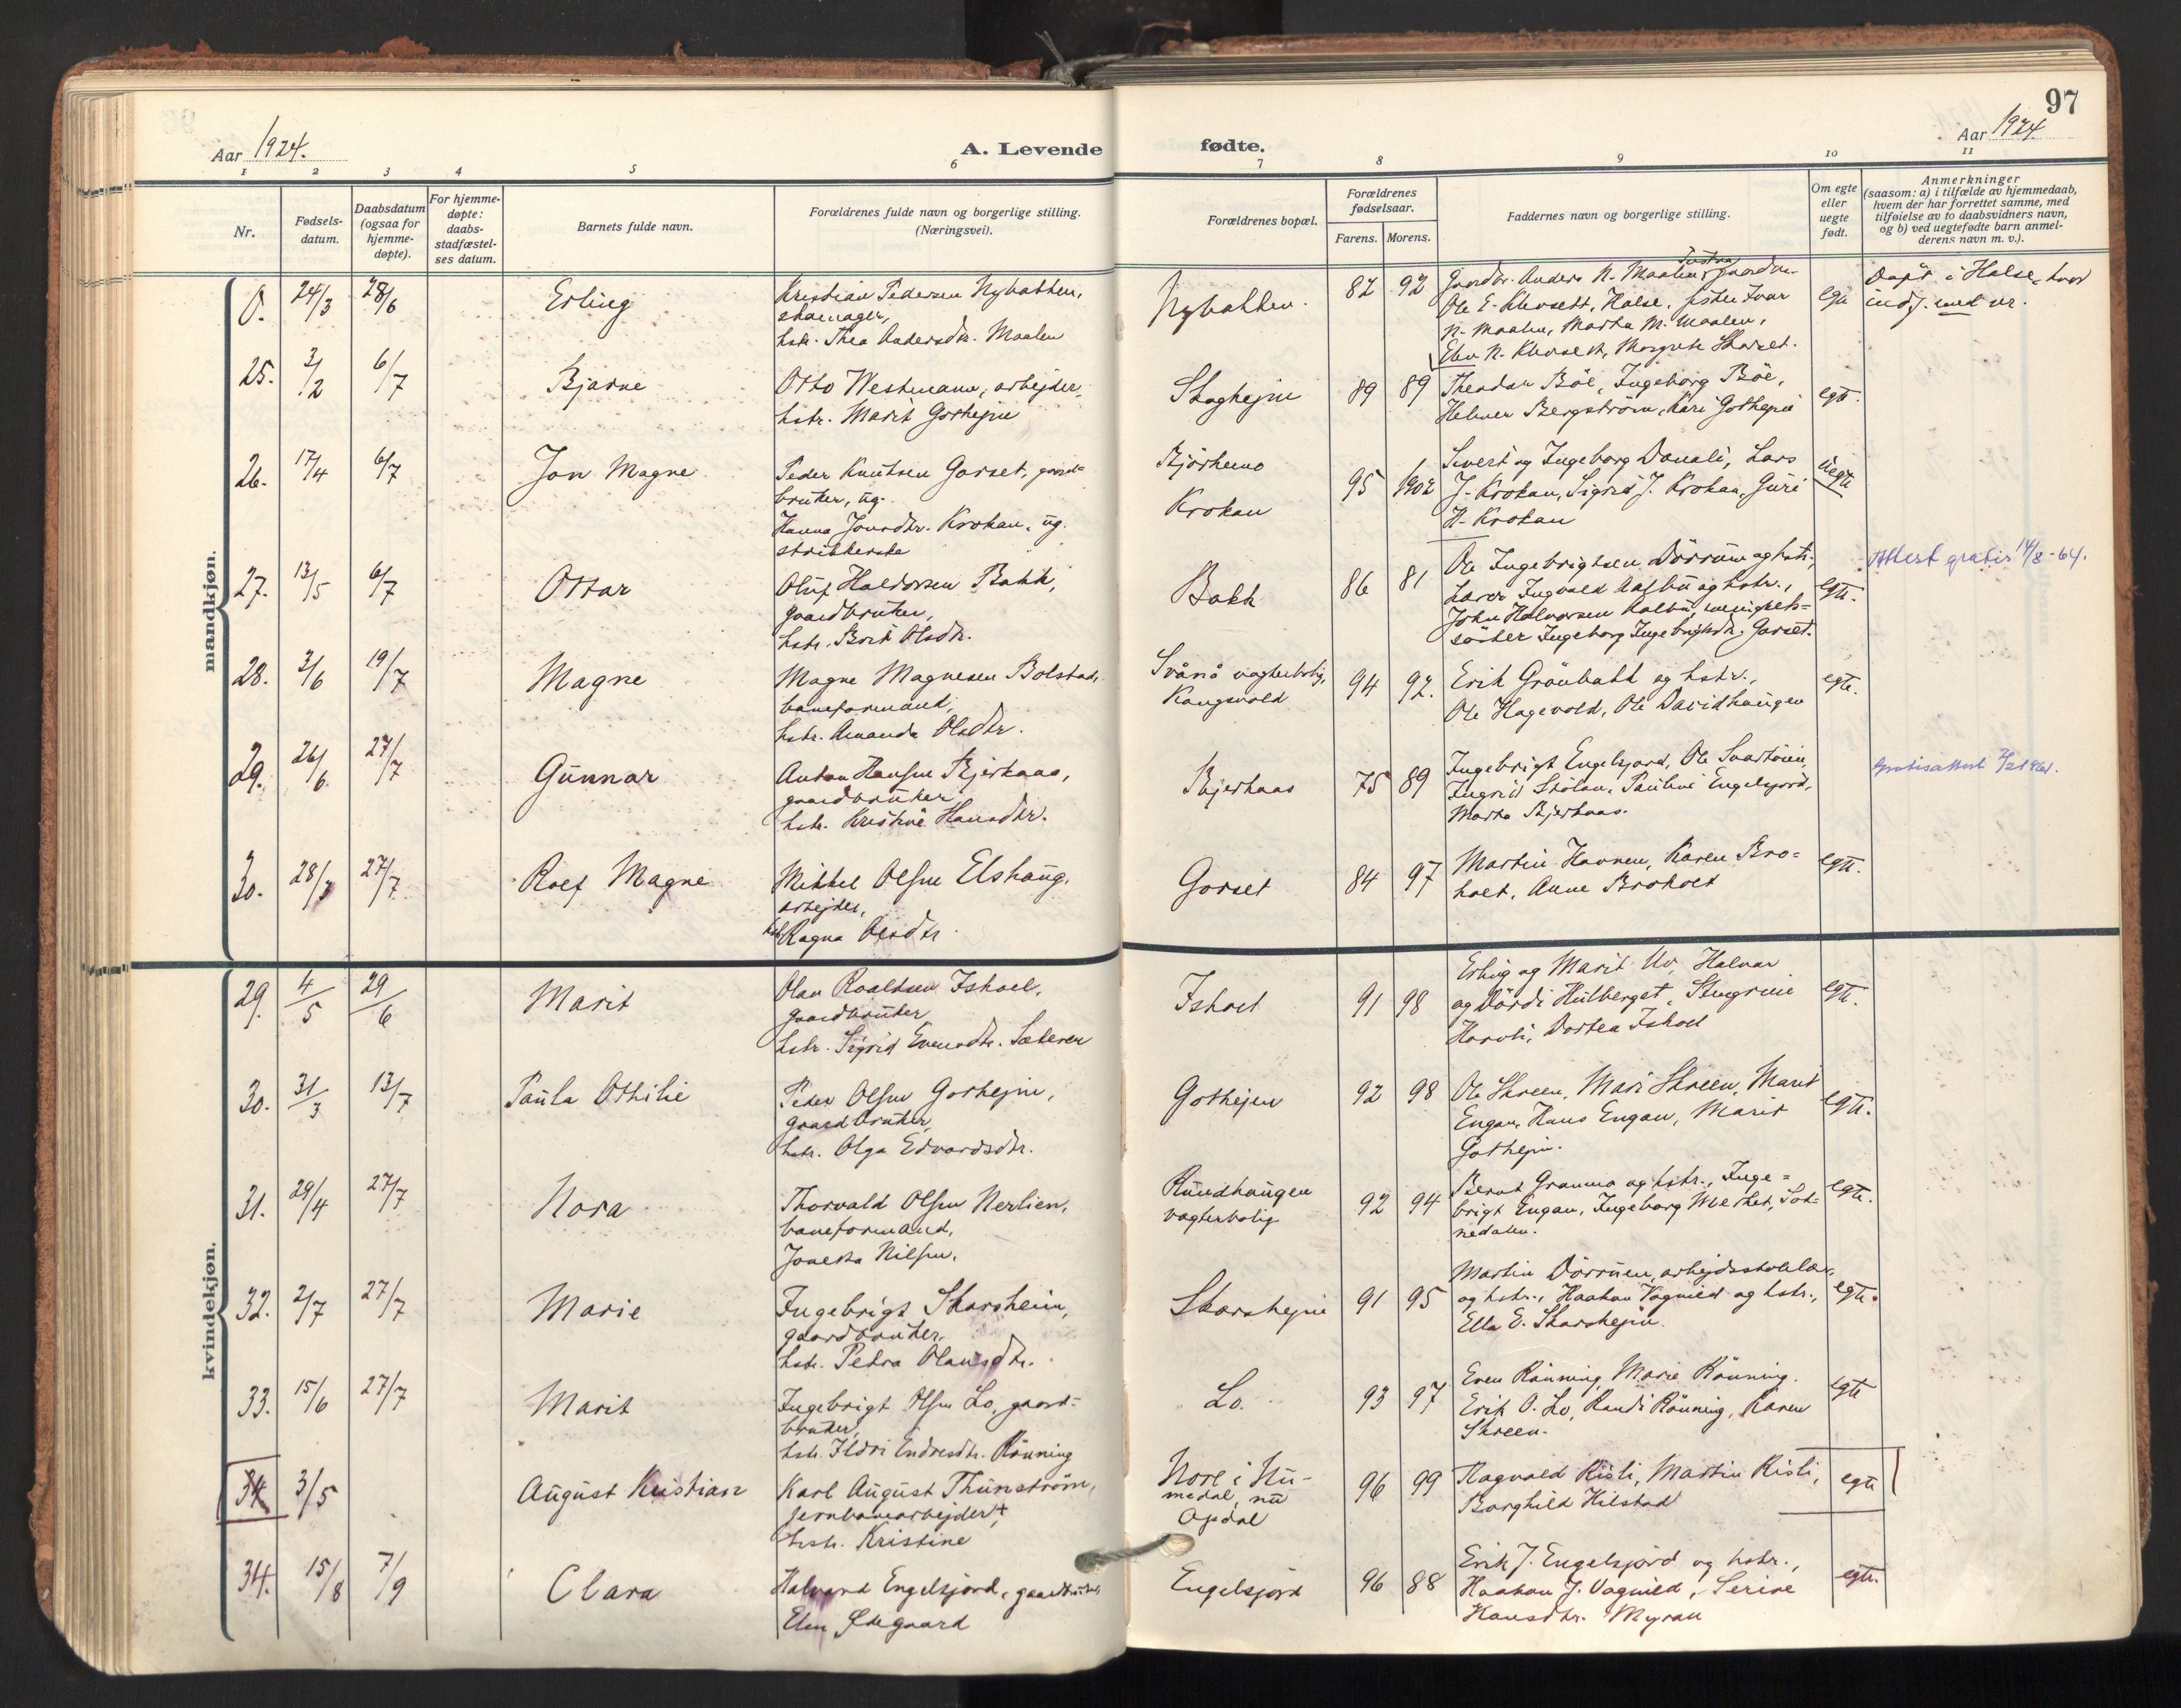 97
Aar 1924.
A. Levende
fødte.
Aar 1924
1 2 3 4 5 6 7 8 9 10 11
Nr.
Fødsels-
datum.
Daabsdatum
(ogsaa for
hjemme-
døpte).
For hjemme-
døpte:
daabs-
stadfæstel-
ses datum.
Barnets fulde navn.
Forældrenes fulde navn og borgerlige stilling.
(Næringsvei).
Forældrenes bopæl.
Forældrenes
fødselsaar.
Farens. Morens.
Faddernes navn og borgerlige stilling.
Om egte
eller
uegte
født.
Anmerkninger
(saasom: a) i tilfælde av hjemmedaab,
hvem der har forrettet samme, med
tilføielse av to daabsvidners navn,
og b) ved uegtefødte barn anmel-
derens navn m. v.).
mandkjøn.
0. 24/3 28/6 Erling
Kristian Pedersen Nybakken,
skomager,
hstr. Thea Andersdtr. Maalen
Nybakken. 82 92
Gaardbr. Anders N. Maalen,
Ole E. Klevsett, Halse, Ivar
N. Maalen, Marta M. Maalen,
N. Klevsett, Margrete
egte
Døpt i Halse, hvor
indf. med nr.
25. 3/2 6/7 Bjarne
Otto Westmann, arbejder,
hstr. Marit Gorhejm
Skoghejm 89 89
Theodor Böe, Ingeborg Böe,
Helmer Bergström, Kari Gothejm
egte.
26. 17/4 6/7 Jon Magne
Peder Knutsen Gorset, gaard=
bruker, ug.
Hanna Jonsdtr. Krokan, ug.
strikkerske
Bjørkemo
Krokan
95 1902
Sivert og Ingeborg Donali, Lars
J. Krokan, Sigrid J. Krokan, Guri
H. Krokan
uegte
27. 13/5 6/7 Ottar
Oluf Haldorsen Bakk,
gaardbruker,
hstr. Brit Olsdtr.
Bakk 86 81
Ole Ingebrigtsen Dörrum og hstr.,
Lærer Ingvald Aalbu og hstr.,
John Halvorsen Aalbu, menighets=
söster Ingeborg Ingebrigtsdtr. Gorset.
egte.
Attest gratis 14/8-64.
28. 3/6 19/7 Magne
Magne Magnesen Bolstad,
baneformand,
hstr. Amanda Olsdtr.
Svånå vogterbolig,
Kongsvold
94 92.
Erik Grönbakk og hstr.,
Ole Hagevold, Ole Davidhaugen
egte.
29. 26/6 27/7 Gunnar
Anton Hansen Bjerkaas,
gaardbruker
hstr. Kristine Hansdtr.
Bjerkaas 75 89
Ingebrigt Engelsjord, Ole Svartöien,
Ingrid Stölan, Pauline Engelsjord,
Marta Bjerkaas.
Gratisattest
30. 28/3 27/7 Rolf Magne
Mikkel Olsen Elshaug,
arbejder,
hstr. Ragna Olsdtr.
Gorset 84 97
Martin Havnen, Karen Bro=
holt, Anne Broholt
egte.
kvindekjøn.
29. 4/5 29/6 Marit
Olav Roaldsen Ishoel,
gaardbruker
hstr. Sigrid Evensdtr. Sæteren
Ishoel 91 98
Erling og Marit Uv, Halvar
og Dördi Hulberget, Stengrim
Horvli, Dortea Ishoel
egte.
30. 31/3 13/7 Paula Othilie
Peder Olsen Gorhejm,
gaardbruker,
hstr. Olga Edvardsdtr.
Gothejm 92 98
Ole Skreen, Mari Skreen, Marit
Engan, Hans Engan, Marit
Gothejm.
egte.
31. 29/4 27/7 Nora
Thorvald Olsen Nerlien,
baneformand,
Jonetta Nilsen.
Rundhaugen
vogterbolig
92 94
Bernt Gramo og hstr., Inge=
brigt Engan, Ingeborg Merket, Sok=
nedalen.
egte.
32. 2/7 27/7 Marie
Ingebrigt Skorsheim,
gaardbruker.
hstr. Petra Olausdtr.
Skorshejm 91 95
Martin Dörrum, arbejdsskolelær.
og hstr., Haakon Vognild og hstr.,
Ella E. Skorshejm.
egte.
33. 15/6 27/7 Marit
Ingebrigt Olsen Lo, gaard-
bruker,
hstr. Ildri Endresdtr. Rönning
Lo. 93 97
Even Rönning, Marie Rönning,
Erik O. Lo, Randi Rönning, Karen
Skreen.
egte
34 3/5 August Kristian
Karl August Thunström,
jernbanearbejder+,
hstr. Kristine
Nore i Nu-
medal, nu
Opdal
96 99
Ragvald Risli, Martin Risli,
Borghild Hilstad
egte
34. 15/8 7/9 Clara
Halvard Engelsjord, gaardbruker,
Elen Ødegaard
Engelsjord 96 88
Erik J. Engelsjord og hstr.,
Haakon J. Vognild, Serine
Hansdtr. Myran
egte.